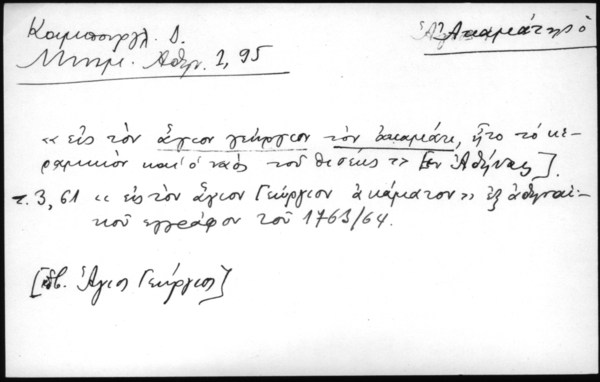 Καμπούρογλ. Δ.
Μνημ. Αθην. 1, 95
Ἀκαμάτης ὁ
« εἰς τὸν ἅγιον γεώργιον τὸν ἀκαμάτι, ἤτο τὸ κε-
ραμικιὸν καὶ ὁ ναὸς τοῦ θησέως » [ἐν Ἀθήναις].
τ. 3, 61 « εἰς τὸν ἅγιον Γεώργιον ἀκάματον » ἐξ ἀθηναϊ-
κοῦ ἐγγράφου τοῦ 1763/64.
[πβ. Ἅγιος Γεώργιος]